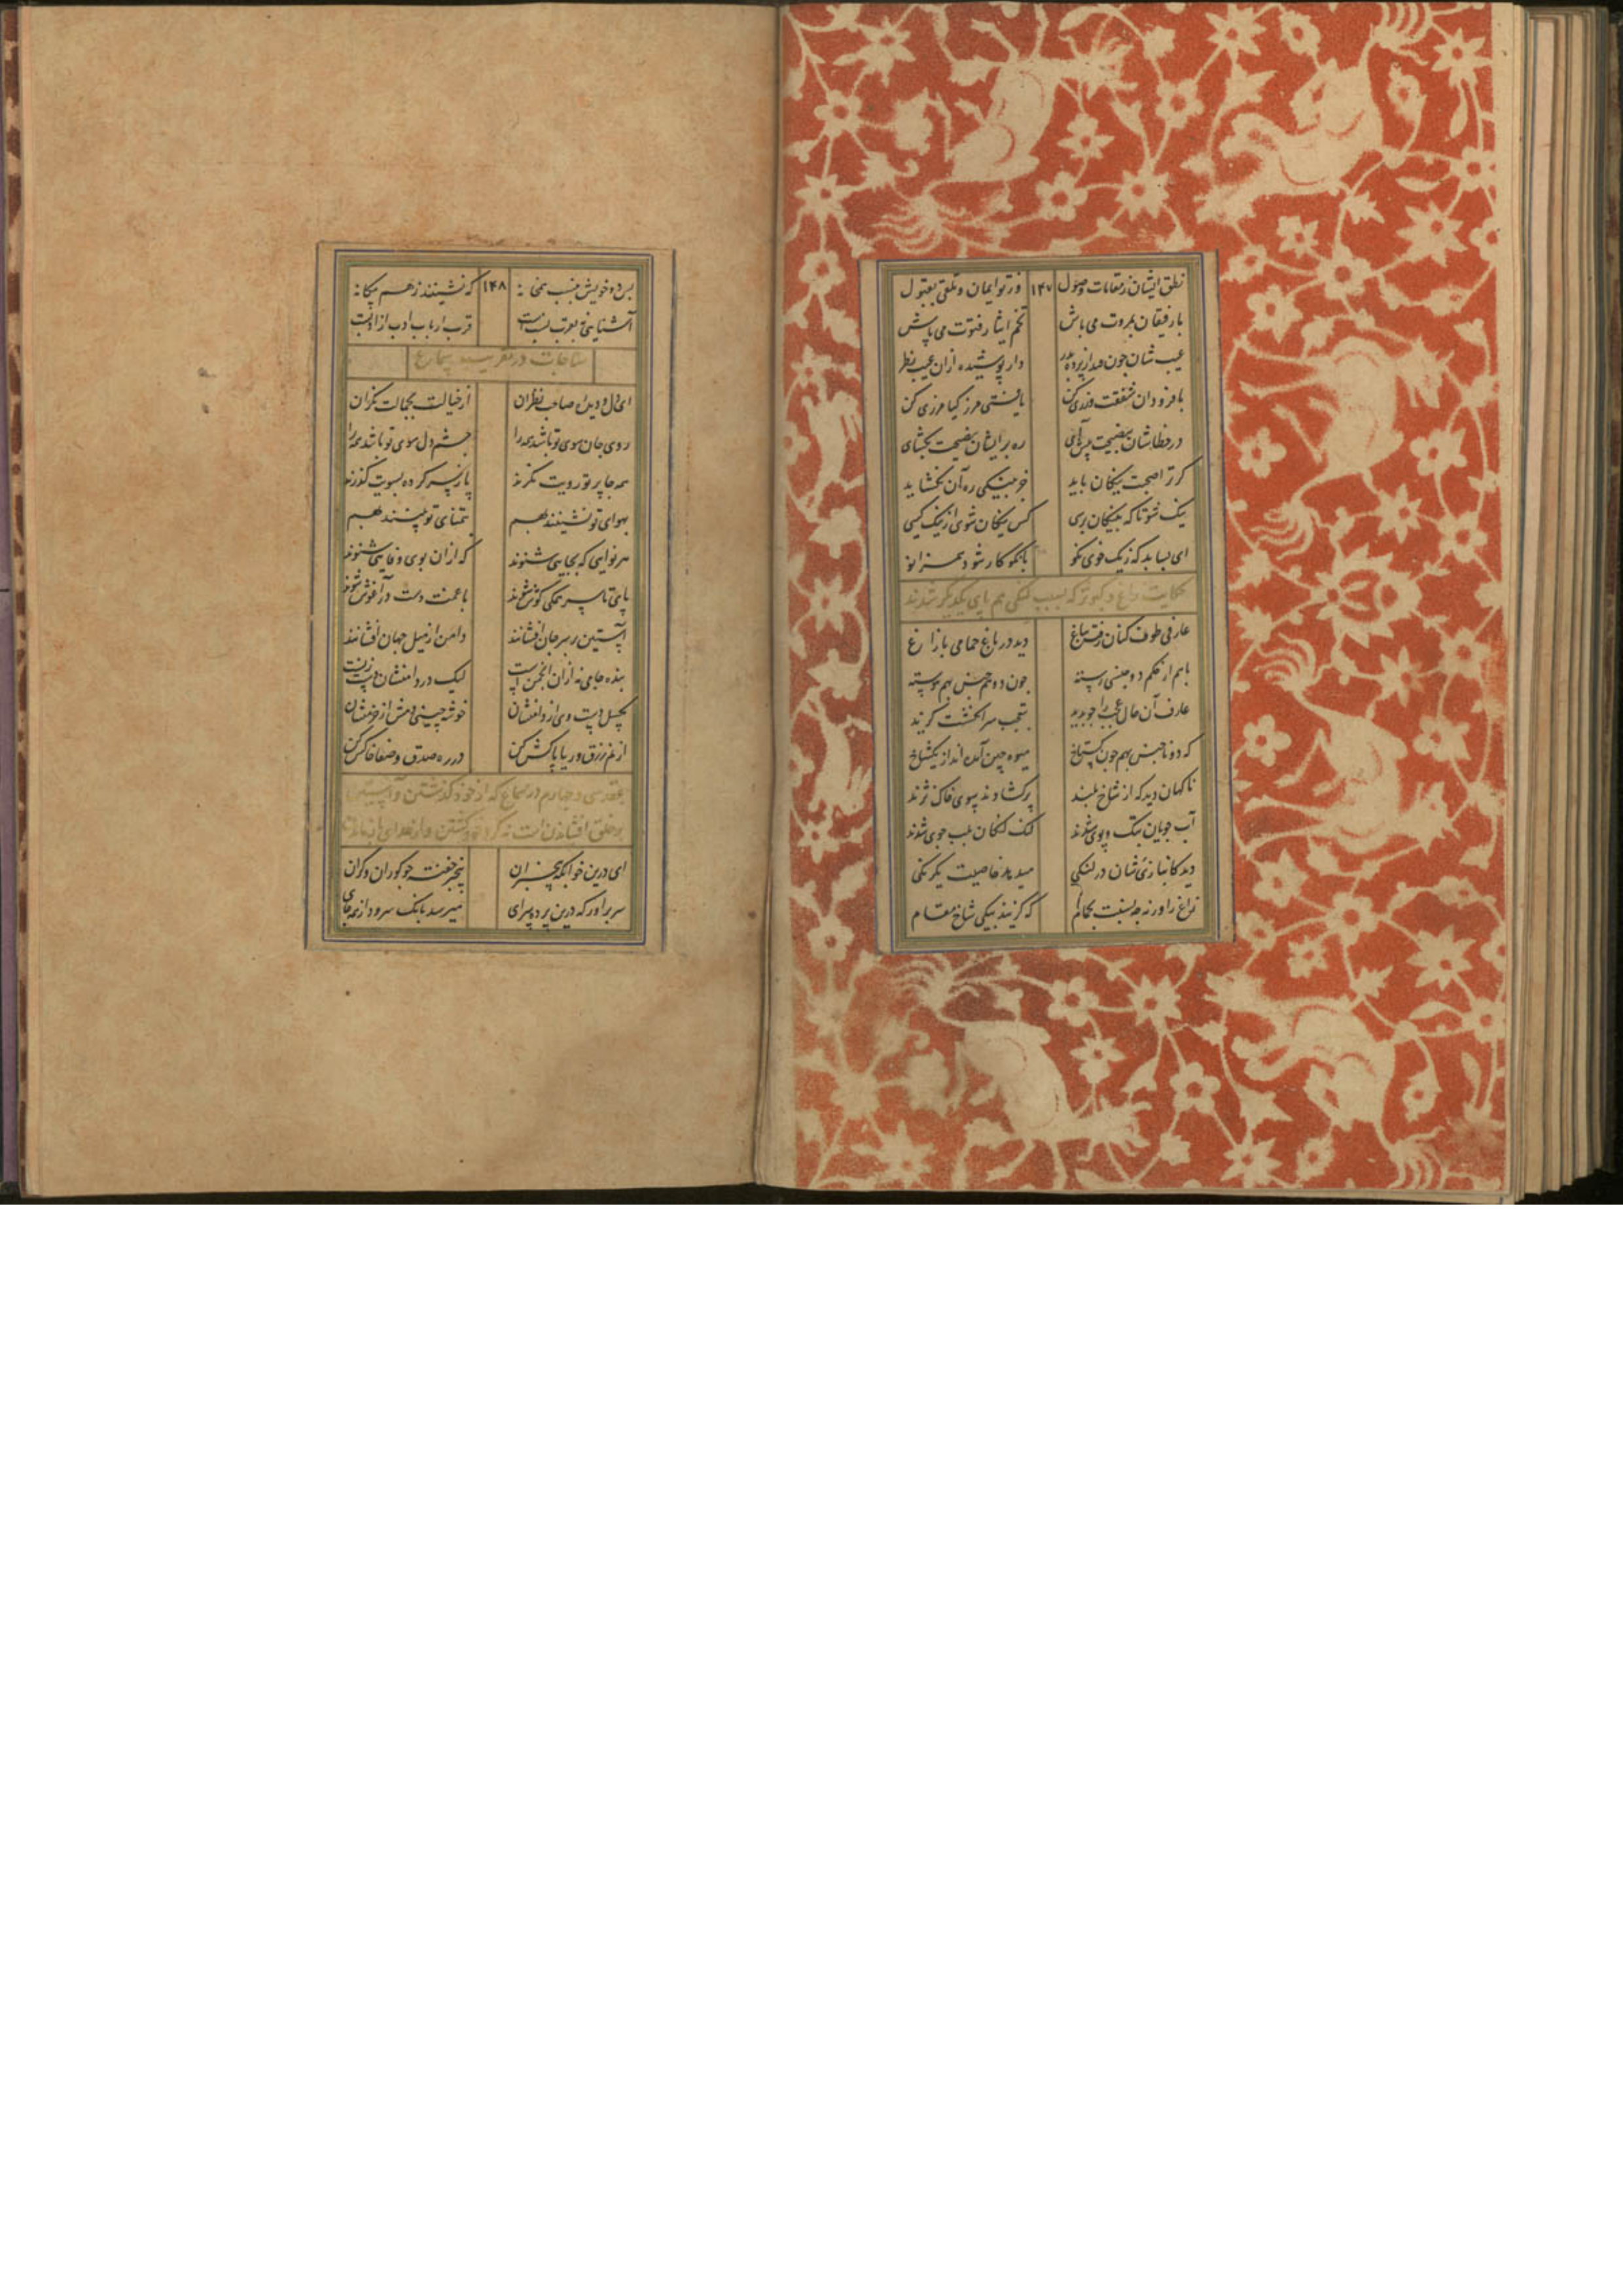 نطق ایشان ز مقامات وصول ۱۴۷ وز تو ایمان و تلقی بقبول
با رفیقان بمروت می باش تخم ایثار فتوت می پاش
عیب شان جون فتد از پرده بدر دار پوشیده ازان عیب نظر
با فرودان شفقت ورزی کن
در خطاشان بنصیحت پیش آی ره بر ایشان بفضیحت مگشای
گر ترا صحبت نیکان باید جز بنیکی ره آن نگشاید
نیک شو تا که بنیکان برسی کس نیکان شوی از نیک کسی
ای بسا بد که ز یک خوی نکو با نکوکار شود همزانو
حکایت زاغ و کبوتر که بسبب لنگی هم پای یکدیگر شدند
عارفی طوف کنان رفت بباغ دید در باغ حمامی با زاغ
با هم از حکم دو جنسی رسته جون دو هم جنس بهم پیوسته
عارف آن حال عجب را جو بدید بتعجب سر انگشت گزید
که دو ناجنس بهم جون گستاخ میوه جین آمده اند از یکشاخ
ناگهان دید که از شاخ بلند پر گشادند بسوی خاک نژند
آب جویان بتک و پوی شدند لنگ لنگان بلب جوی شدند
دید کانبازی شان در لنگی میدهد خاصیت یکرنگی
زاغ را ورنه جه نسبت بحمام که گزیند بیکی شاخ مقام
بس دو خویش بنسب همخانه ۱۴۸ که نشینند ز هم بیکانه
آشنایی نه بقرب نسبست قرب ارباب ادب از ادبست
مناجات در سماع
ای دل و دیده صاحب نظران از خیالت بجمالت نگران
روی جان سوی تو باشد همه را جشم دل سوی تو باشد همه را
همه جا پرتو رویت نگرند پا ز سر کرده بسویت گذرند
بهوای تو نشینند بهم بتمنای تو بینند بهم
هر نوایی که بجایی شنوند که ازان بوی وفایی شنوند
پای تا سر همگی گوش شوند با غمت دست در آغوش شوند
آستین بر سر جان افشانند دامن از میل جهان افشانند
بنده جامی نه ازان انجمن است لیک در دامنشان دست زنست
مگسل دست وی از دامنشان خوشه جینی دهش از خرمنشان
از غم زرق و ریا پاکش کن در ره صدق و صفا خاکش کن
عقد سی و جهارم در سماع که از خود گذشتن و آستین
بر خلق افشاندن است نه گرد خود گشتن
ای درین خوابگه بیخبران بیخبر خفته جو کوران و کران
سر برآور که درین پرده سرای میرسد بانک سرود از همه جای